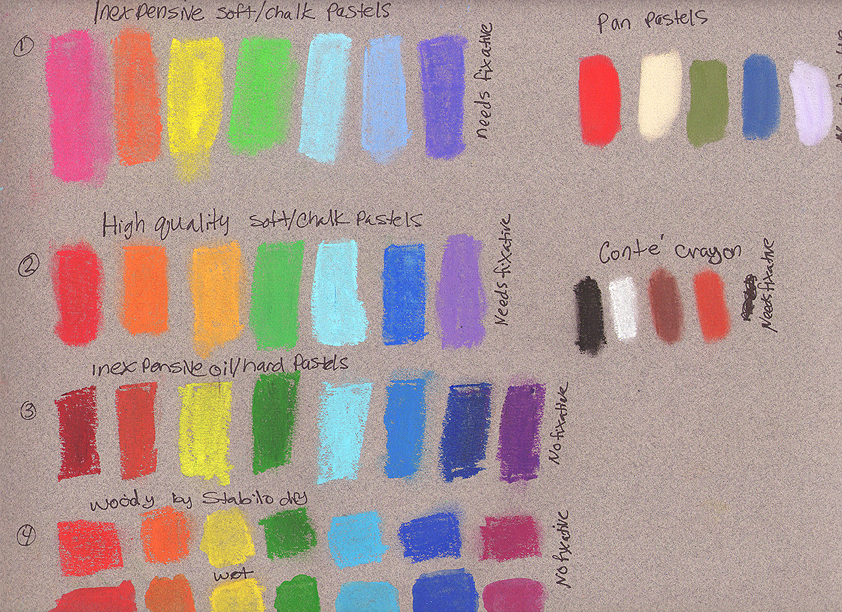 Inexpensive soft/chalk Pastels
①
needs fixative
High quality soft/chalk Pastels
②
Needs fixative
inexpensive oil/hard Pastels
③
No fixative
woody by Stabilo dry
④
No fixative
wet
Pan Pastels
Conté crayon
Needs fixative